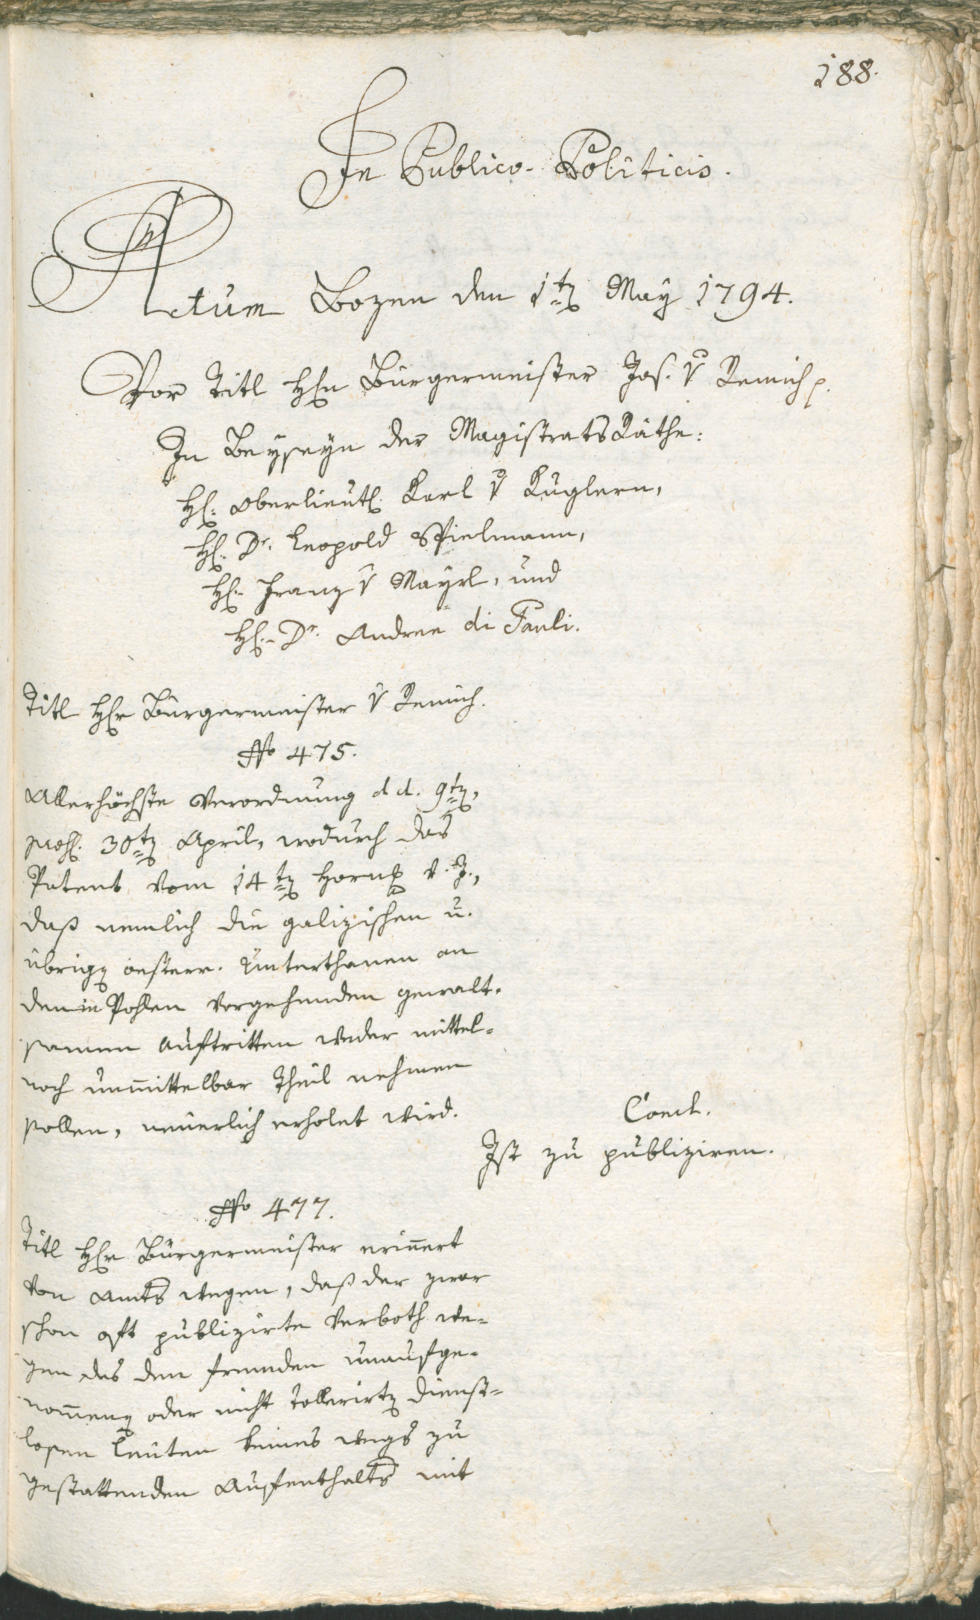 188.
In Publico-Politicis.
Actum Bozen den 1ten May 1794.
Vor Titl Hrn Bürgermeister Jos. v Remich p.
In Beyseyn der Magistrats Räthe:
H: Oberlieut. Karl v Kuglern,
H: Dr. Leopold Spielmann,
H: Franz v Mayrl, und
H: Dr. Andree di Pauli.
Titl Hr Bürgermeister v Remich.
No 475.
Allerhöchste Verordnung dd. 9ten,
30ten April, wodurch das
Patent vom 14ten Hornung v. J.,
daß nemlich die galizischen u.
übrigen oesterr. Unterthanen an
den in Pohlen vorgehenden gewalt-
samen Auftritten weder mittel-
noch unmittelbar Theil nehmen
sollen, neuerlich erholet wird.
Concl.
Ist zu publiziren.
No 477.
Titl Hr Bürgermeister erinnert
von Amts wegen, daß der zwar
schon oft publizirte Verboth we-
gen des den fremden unaufge-
nommenen oder nicht tollerirten dienst-
losen Leuten keines wegs zu
gestattenden Aufenthalts mit